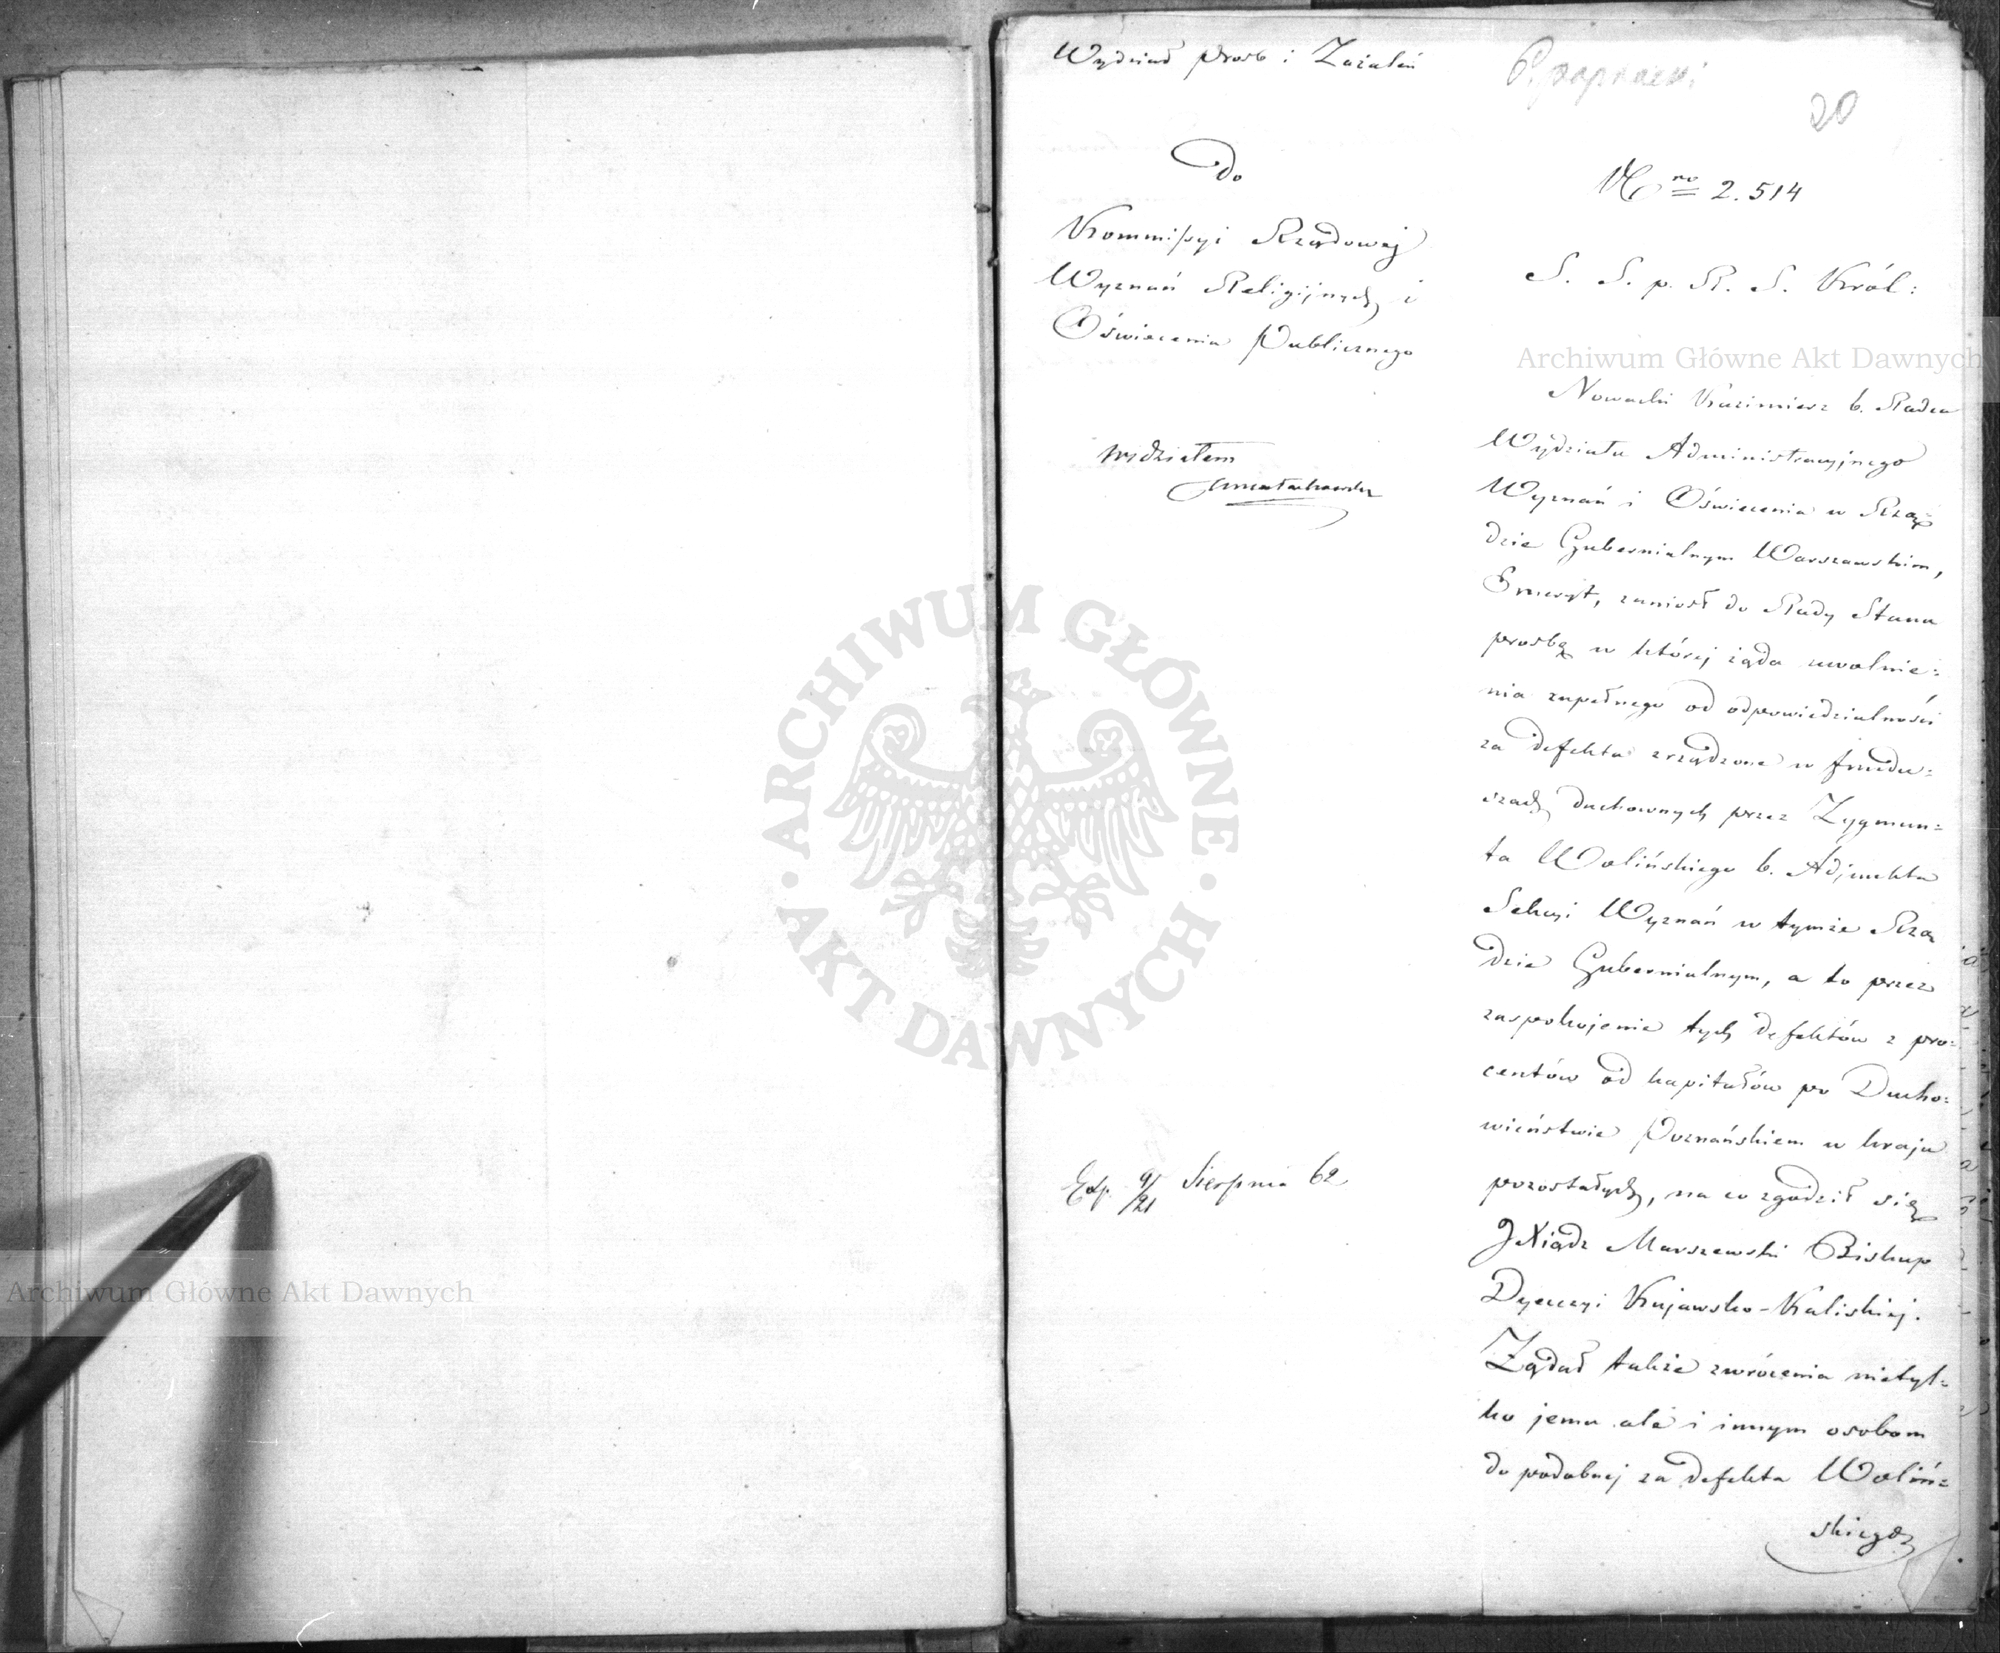 Wydział Prośb i Zażaleń
20
Do
Kommissyi Rządowej
Wyznań Religijnych i
Oświecenia Publicznego
widziałem
Exp 9/21 Sierpnia 62
Nro 2.514
S. S. p. R. S. Król:
Nowacki Kazimierz b. Radca
Wydziału Administracyjnego
Wyznań i Oświecenia w Rzą=
dzie Gubernialnym Warszawskim,
Emeryt, zaniosł do Rady Stanu
prosbę w której żąda uwolnie=
nia zupełnego od odpowiedzialności
za defekta zrządzone w fundu=
szach duchownych przez Zygmun=
ta Wolińskiego b. Adjunkta
Sekcyi Wyznań w tymże Rzą
dzie Gubernialnym, a to przez
zaspokojenie tych defektów z pro=
centów od kapitałów po Ducho=
wieństwie Poznańskiem w kraju
pozostałych, na co zgodził się
JXiądz Marszewski Biskup
Dyecezyi Kujawsko-Kaliskiej.
Żądał także zwrócenia nietyl=
ko jemu ale i innym osobom
do podobnej za defekta Woliń=
skiego
Archiwum Główne Akt Dawnych
ARCHIWUM GŁÓWNE
AKT DAWNYCH
Archiwum Główne Akt Dawnych